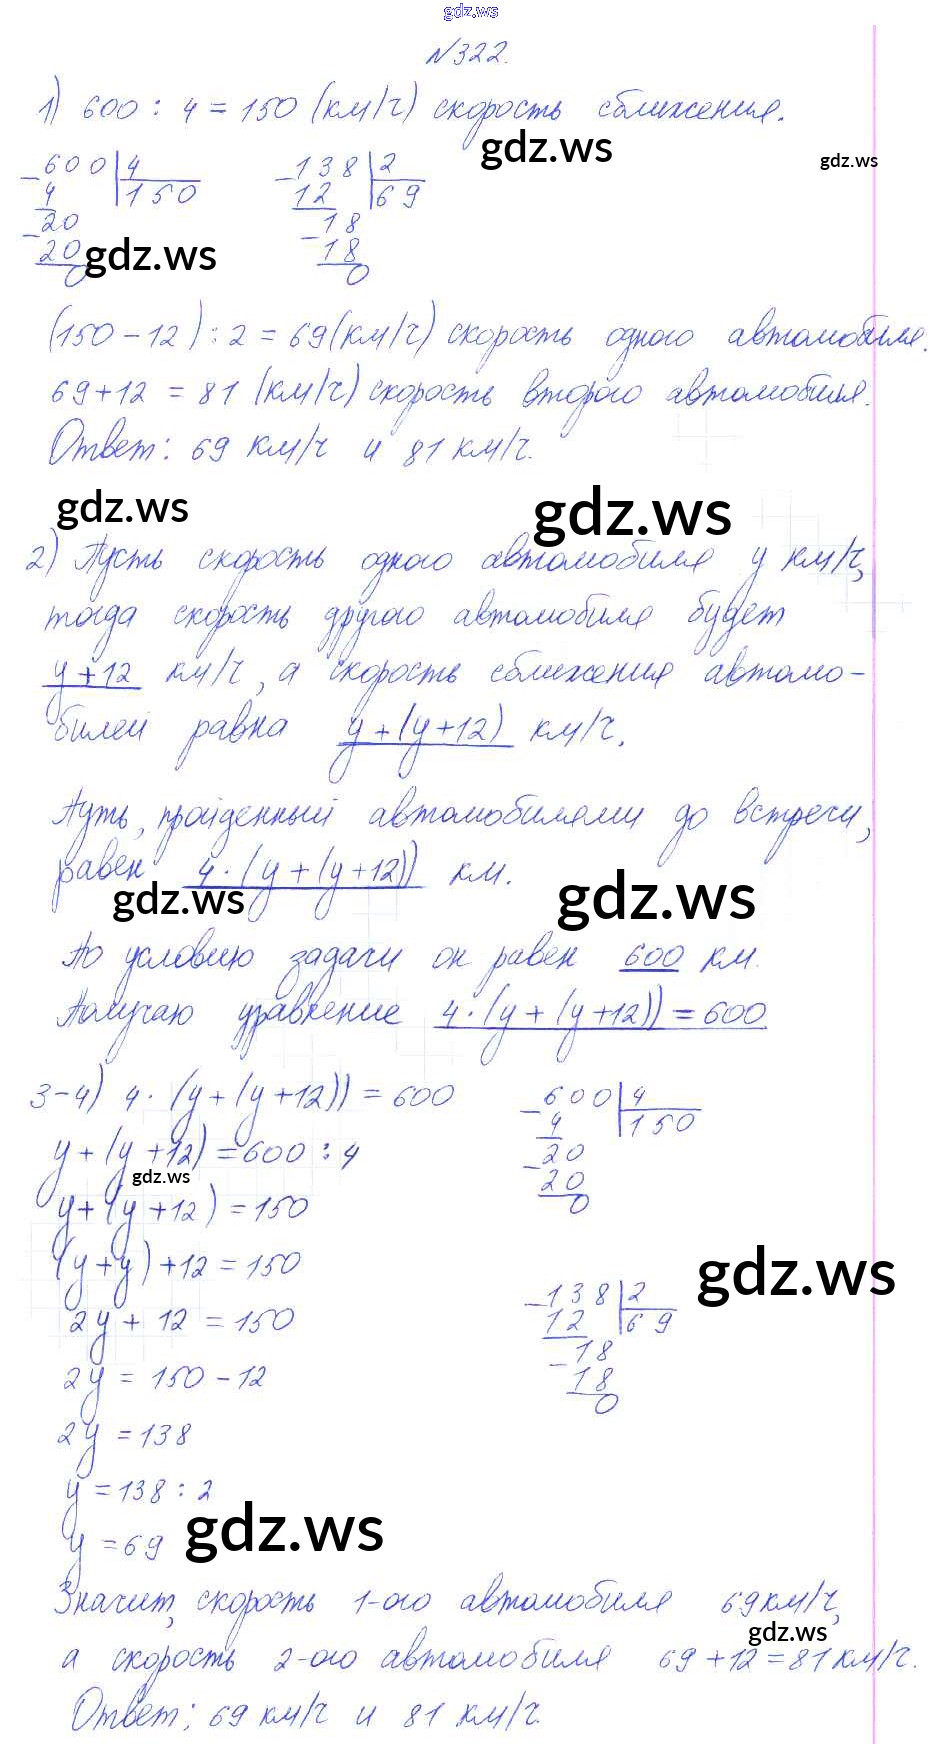 gdz.ws
№322.
1) 600 : 4 = 150 (км/ч) скорость сближения.
gdz.ws
gdz.ws
600 | 4
4 | 150
20
20
0
138 | 2
12 | 69
18
18
0
gdz.ws
(150 - 12) : 2 = 69 (км/ч) скорость одного автомобиля.
69 + 12 = 81 (км/ч) скорость второго автомобиля.
Ответ: 69 км/ч и 81 км/ч.
gdz.ws
gdz.ws
2) Пусть скорость одного автомобиля y км/ч,
тогда скорость другого автомобиля будет
y + 12 км/ч, а скорость сближения автомо-
билей равна y + (y + 12) км/ч.
Путь, пройденный автомобилями до встречи,
равен 4 · (y + (y + 12)) км.
gdz.ws
gdz.ws
По условию задачи он равен 600 км.
Получаю уравнение 4 · (y + (y + 12)) = 600
3-4) 4 · (y + (y + 12)) = 600
y + (y + 12) = 600 : 4
gdz.ws
y + (y + 12) = 150
(y + y) + 12 = 150
2y + 12 = 150
2y = 150 - 12
2y = 138
y = 138 : 2
y = 69
600 | 4
4 | 150
20
20
0
gdz.ws
138 | 2
12 | 69
18
18
0
gdz.ws
Значит, скорость 1-ого автомобиля 69 км/ч,
gdz.ws
а скорость 2-ого автомобиля 69 + 12 = 81 км/ч.
Ответ: 69 км/ч и 81 км/ч.